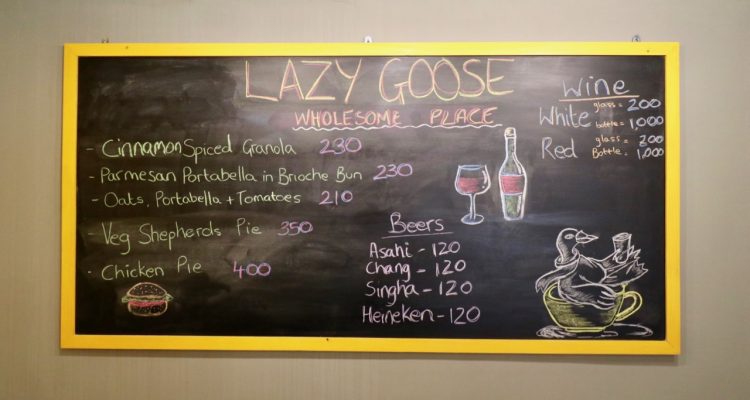 LAZY GOOSE
WHOLESOME PLACE
- Cinnamon Spiced Granola 230
- Parmesan Portabella in Brioche Bun 230
- Oats, Portabella + Tomatoes 210
- Veg Shepherds Pie 350
- Chicken Pie 400
Beers
Asahi - 120
Chang - 120
Singha - 120
Heineken - 120
Wine
White glass = 200
bottle = 1,000
Red glass = 200
Bottle = 1,000